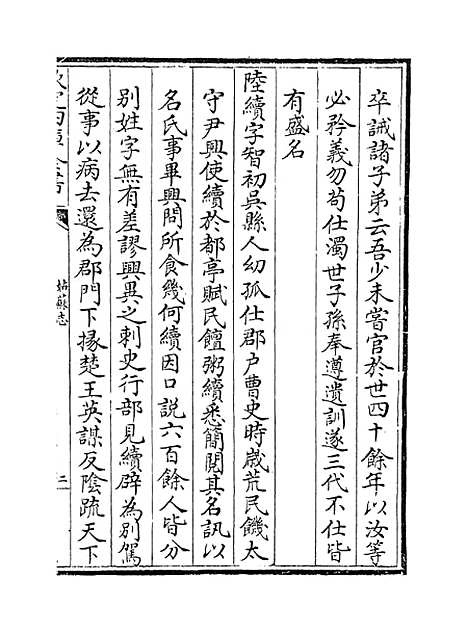 卒誡諸子弟云吾少未嘗官於世四十餘年以汝等
必矜義勿苟仕濁世子孫奉遵遺訓遂三代不仕皆
有盛名
陸續字智初吳縣人幼孤仕郡户曹史時歳荒民饑太
守尹興使續於都亭賦民饘粥續悉簡閲其名訊以
名氏事畢興問所食幾何續因口説六百餘人皆分
别姓字無有差謬興異之刺史行部見續辟為别駕
從事以病去還為郡門下掾楚王英謀反陰疏天下
欽定四庫全書
姑蘇志
二